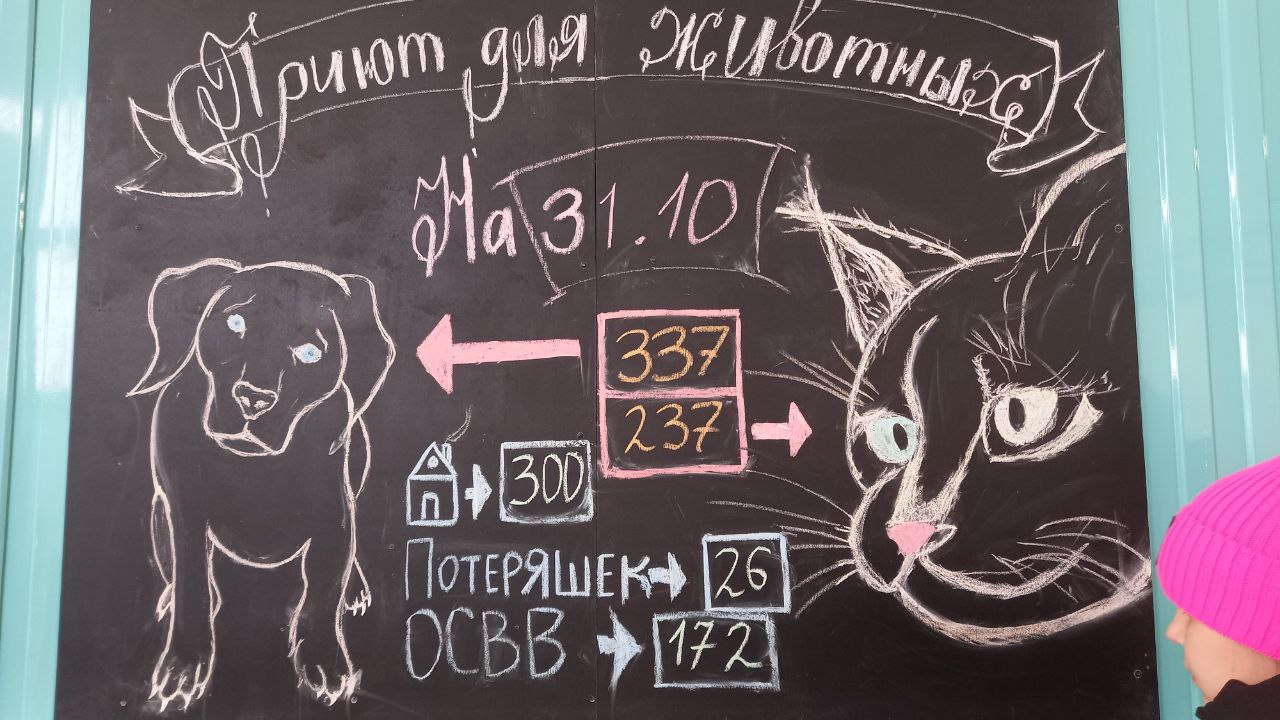 Приют для животных
На 31.10
337
237
300
ПОТЕРЯШЕК 26
ОСВВ 172